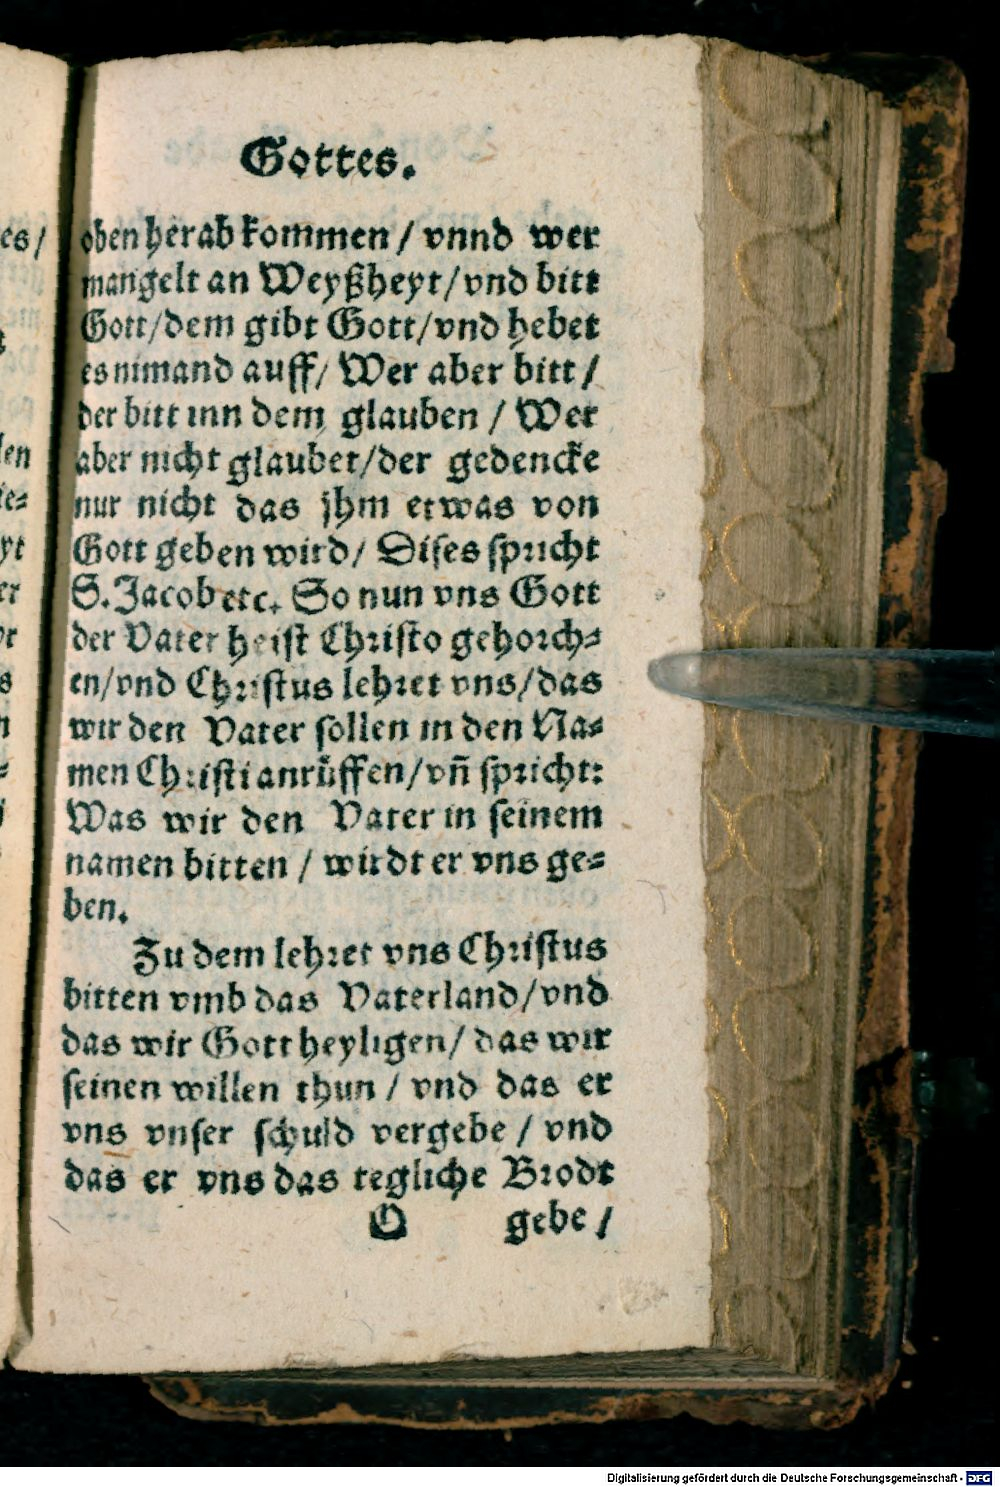 Gottes.
oben herab kommen / vnnd wer
mangelt an Weyßheyt/vnd bitt
Gott/dem gibt Gott/vnd hebet
es nimand auff/ Wer aber bitt /
der bitt inn dem glauben / Wer
aber nicht glaubet/der gedencke
nur nicht das jhm etwas von
Gott geben wird/ Dises spricht
S. Jacob etc. So nun vns Gott
der Vater heist Christo gehorch⸗
en/vnd Christus lehret vns/das
wir den Vater sollen in den Na⸗
men Christi anrüffen/vn̄ spricht:
Was wir den Vater in seinem
namen bitten / wirdt er vns ge⸗
ben.
Zu dem lehret vns Christus
bitten vmb das Vaterland/vnd
das wir Gott heyligen/ das wir
seinen willen thun / vnd das er
vns vnser schuld vergebe / vnd
das er vns das tegliche Brodt
O gebe /
Digitalisierung gefördert durch die Deutsche Forschungsgemeinschaft - DFG